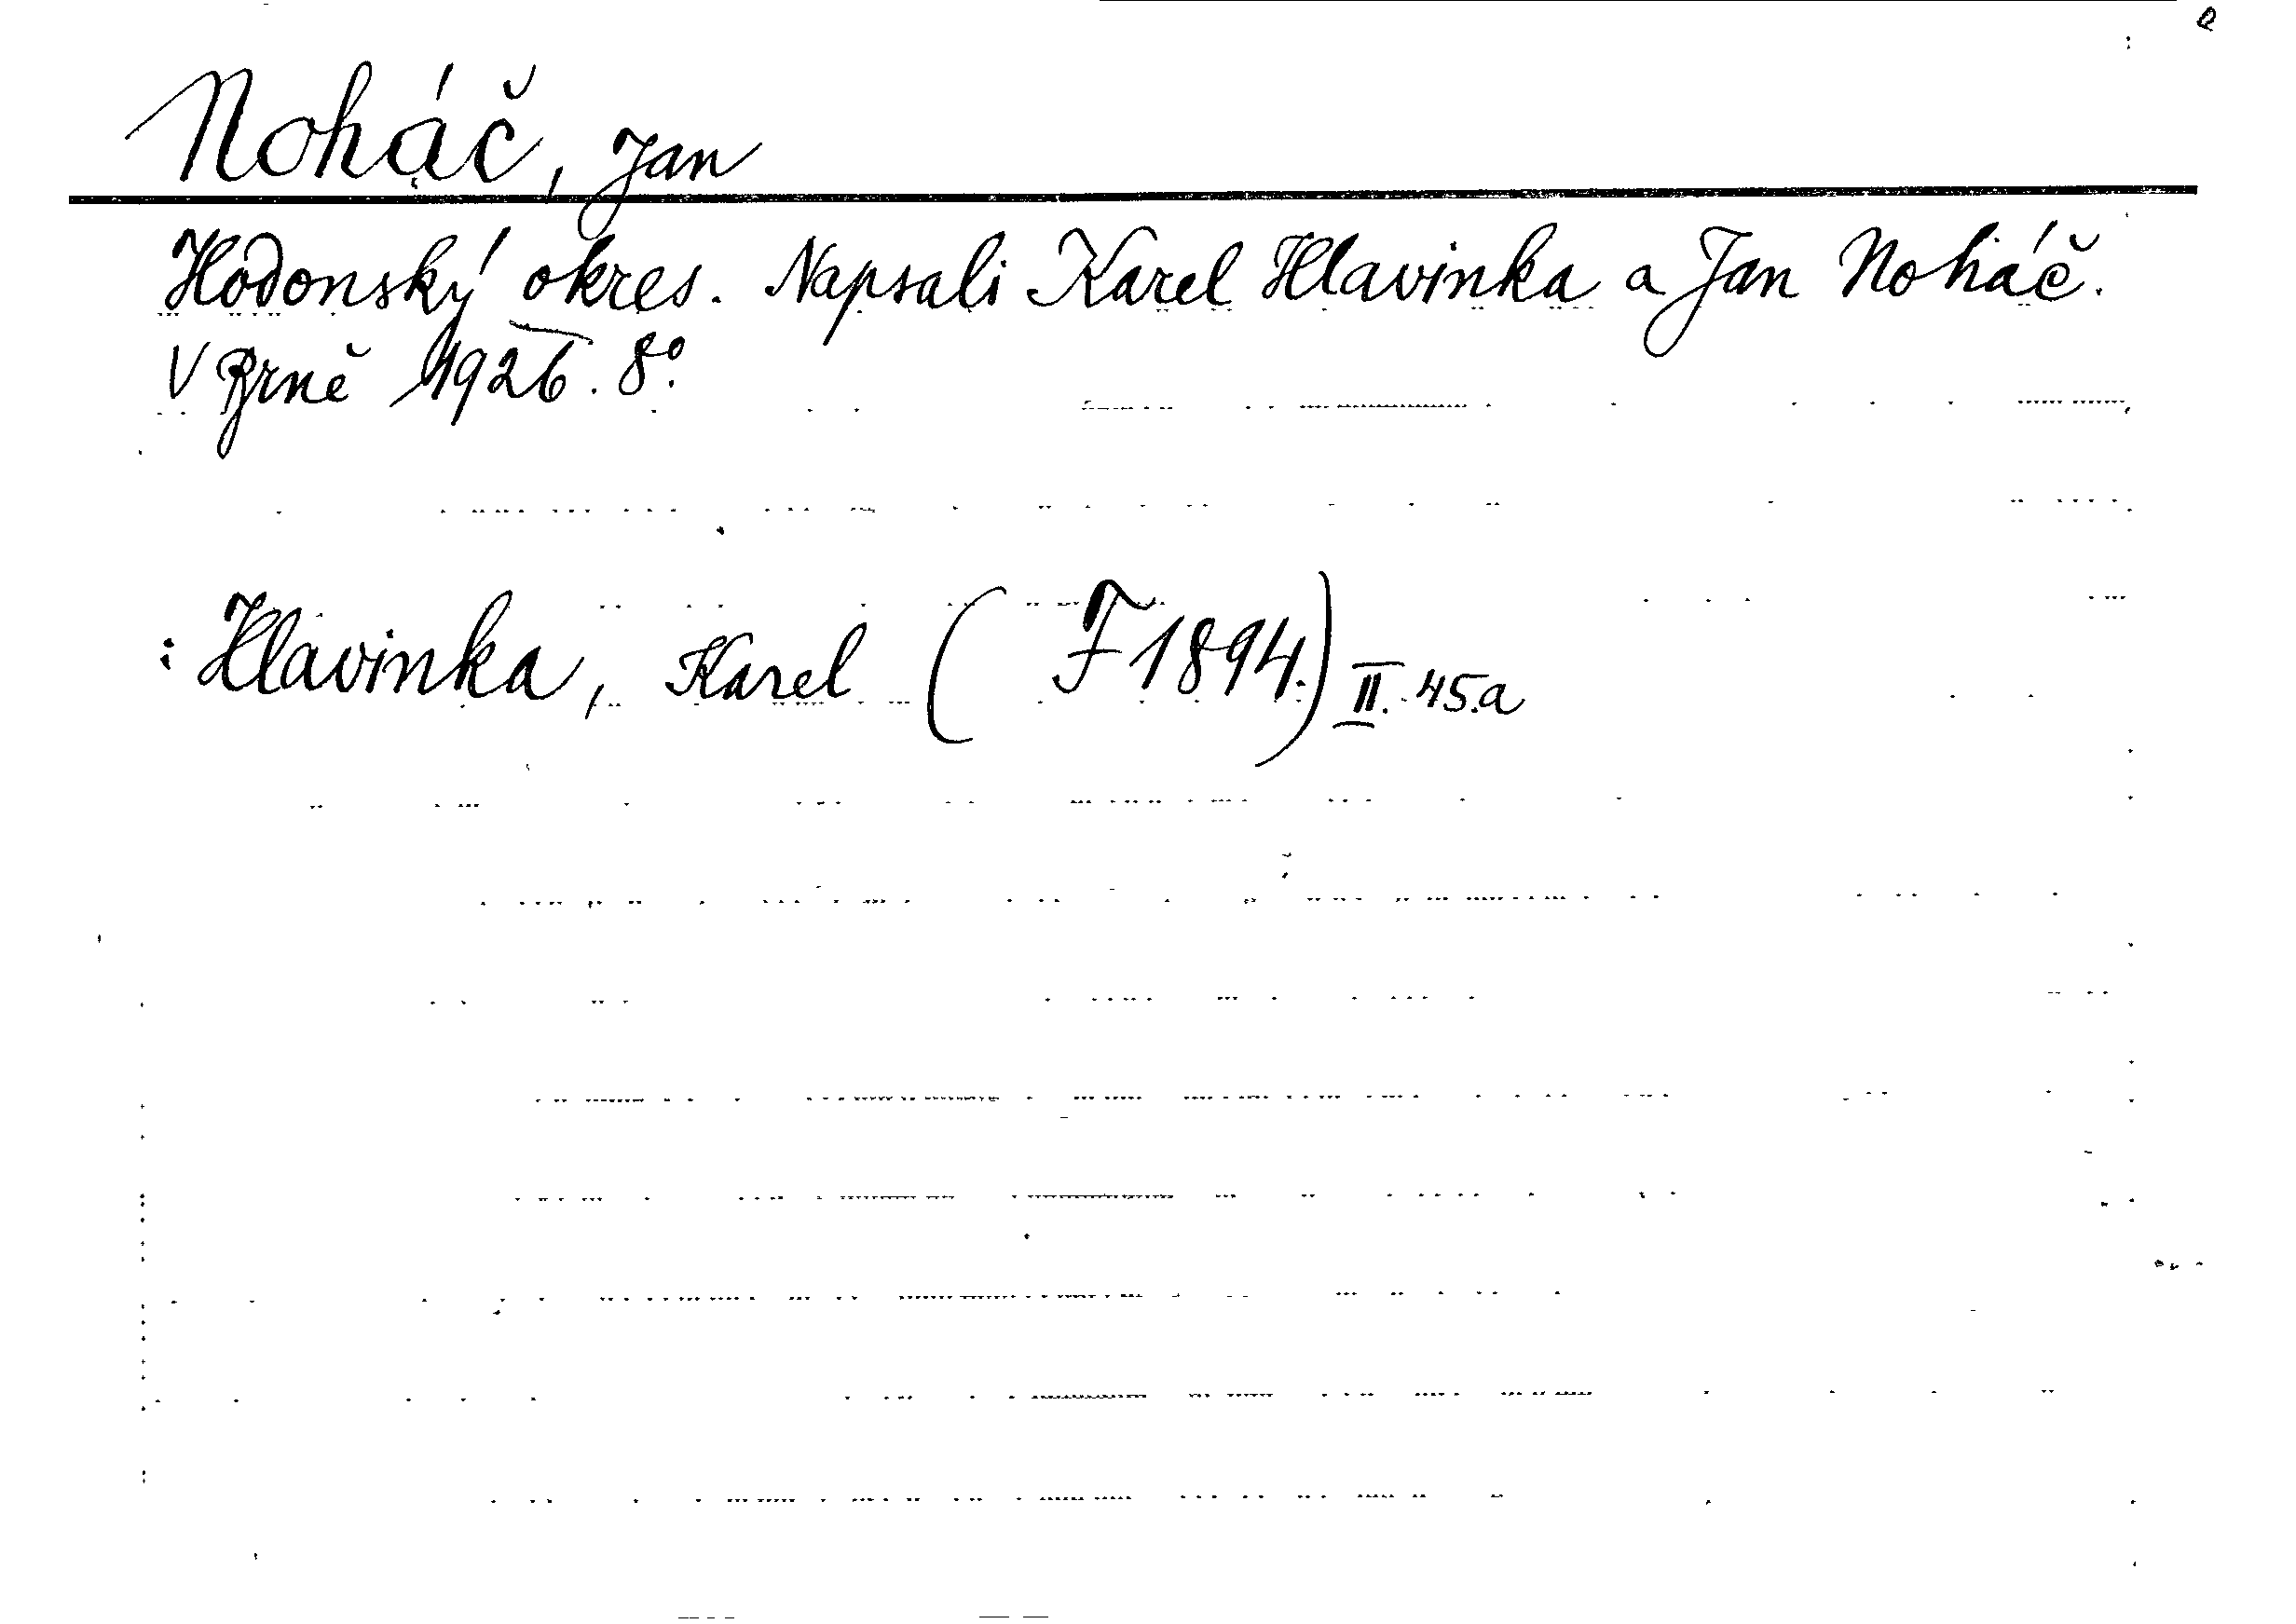 Noháč, Jan
Hodonský okres. Napsali Karel Hlavinka a Jan Noháč.
V Brně 1926. 8°.
: Hlavinka, Karel ( F 1894.) II. 45.a